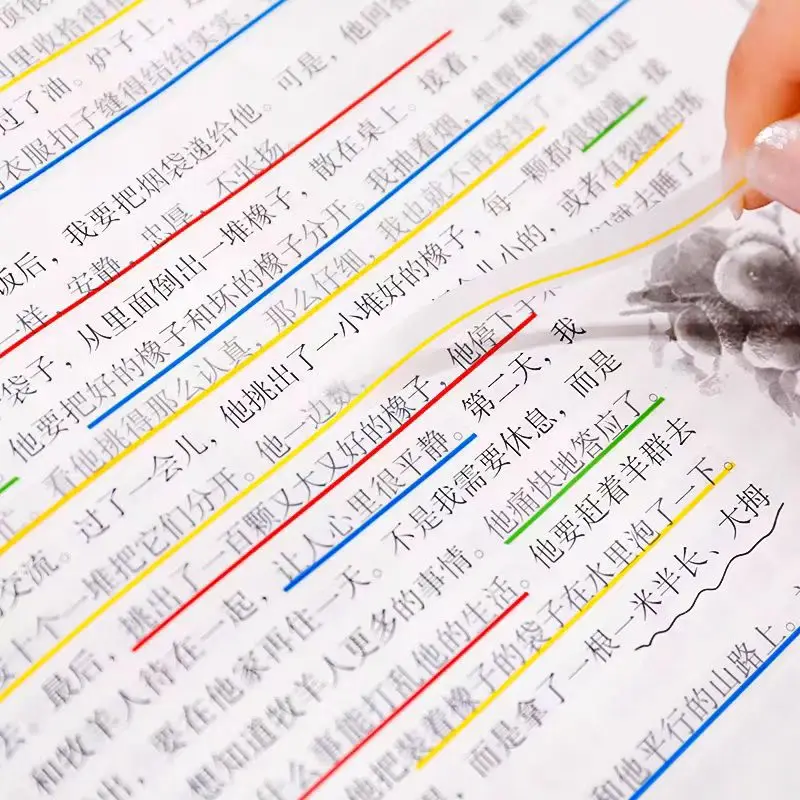 间里收拾得
过了油。炉子上，
衣服扣子缝得结结实实，
饭后，我要把烟袋递给他。可是，他回答
一样，安静，忠厚，不张扬。
袋子，从里面倒出一堆橡子，散在桌上。接着，一颗
他要把好的橡子和坏的橡子分开。我抽着烟，想帮他挑，但
看他挑得那么认真，那么仔细，我也就不再坚持了。这就是
交流。过了一会儿，他挑出了一小堆好的橡子，每一颗都很饱满。接
十个一堆把它们分开。他一边数，个儿小的，或者有裂缝的拣
最后，挑出了一百颗又大又好的橡子，他停下手 们就去睡了。
和牧羊人待在一起，让人心里很平静。第二天，我
出，要在他家再住一天。不是我需要休息，而是
想知道牧羊人更多的事情。他痛快地答应了。
什么事能打乱他的生活。他要赶着羊群去
他把装着橡子的袋子在水里泡了一下。
，而是拿了一根一米半长、大拇
和他平行的山路上。